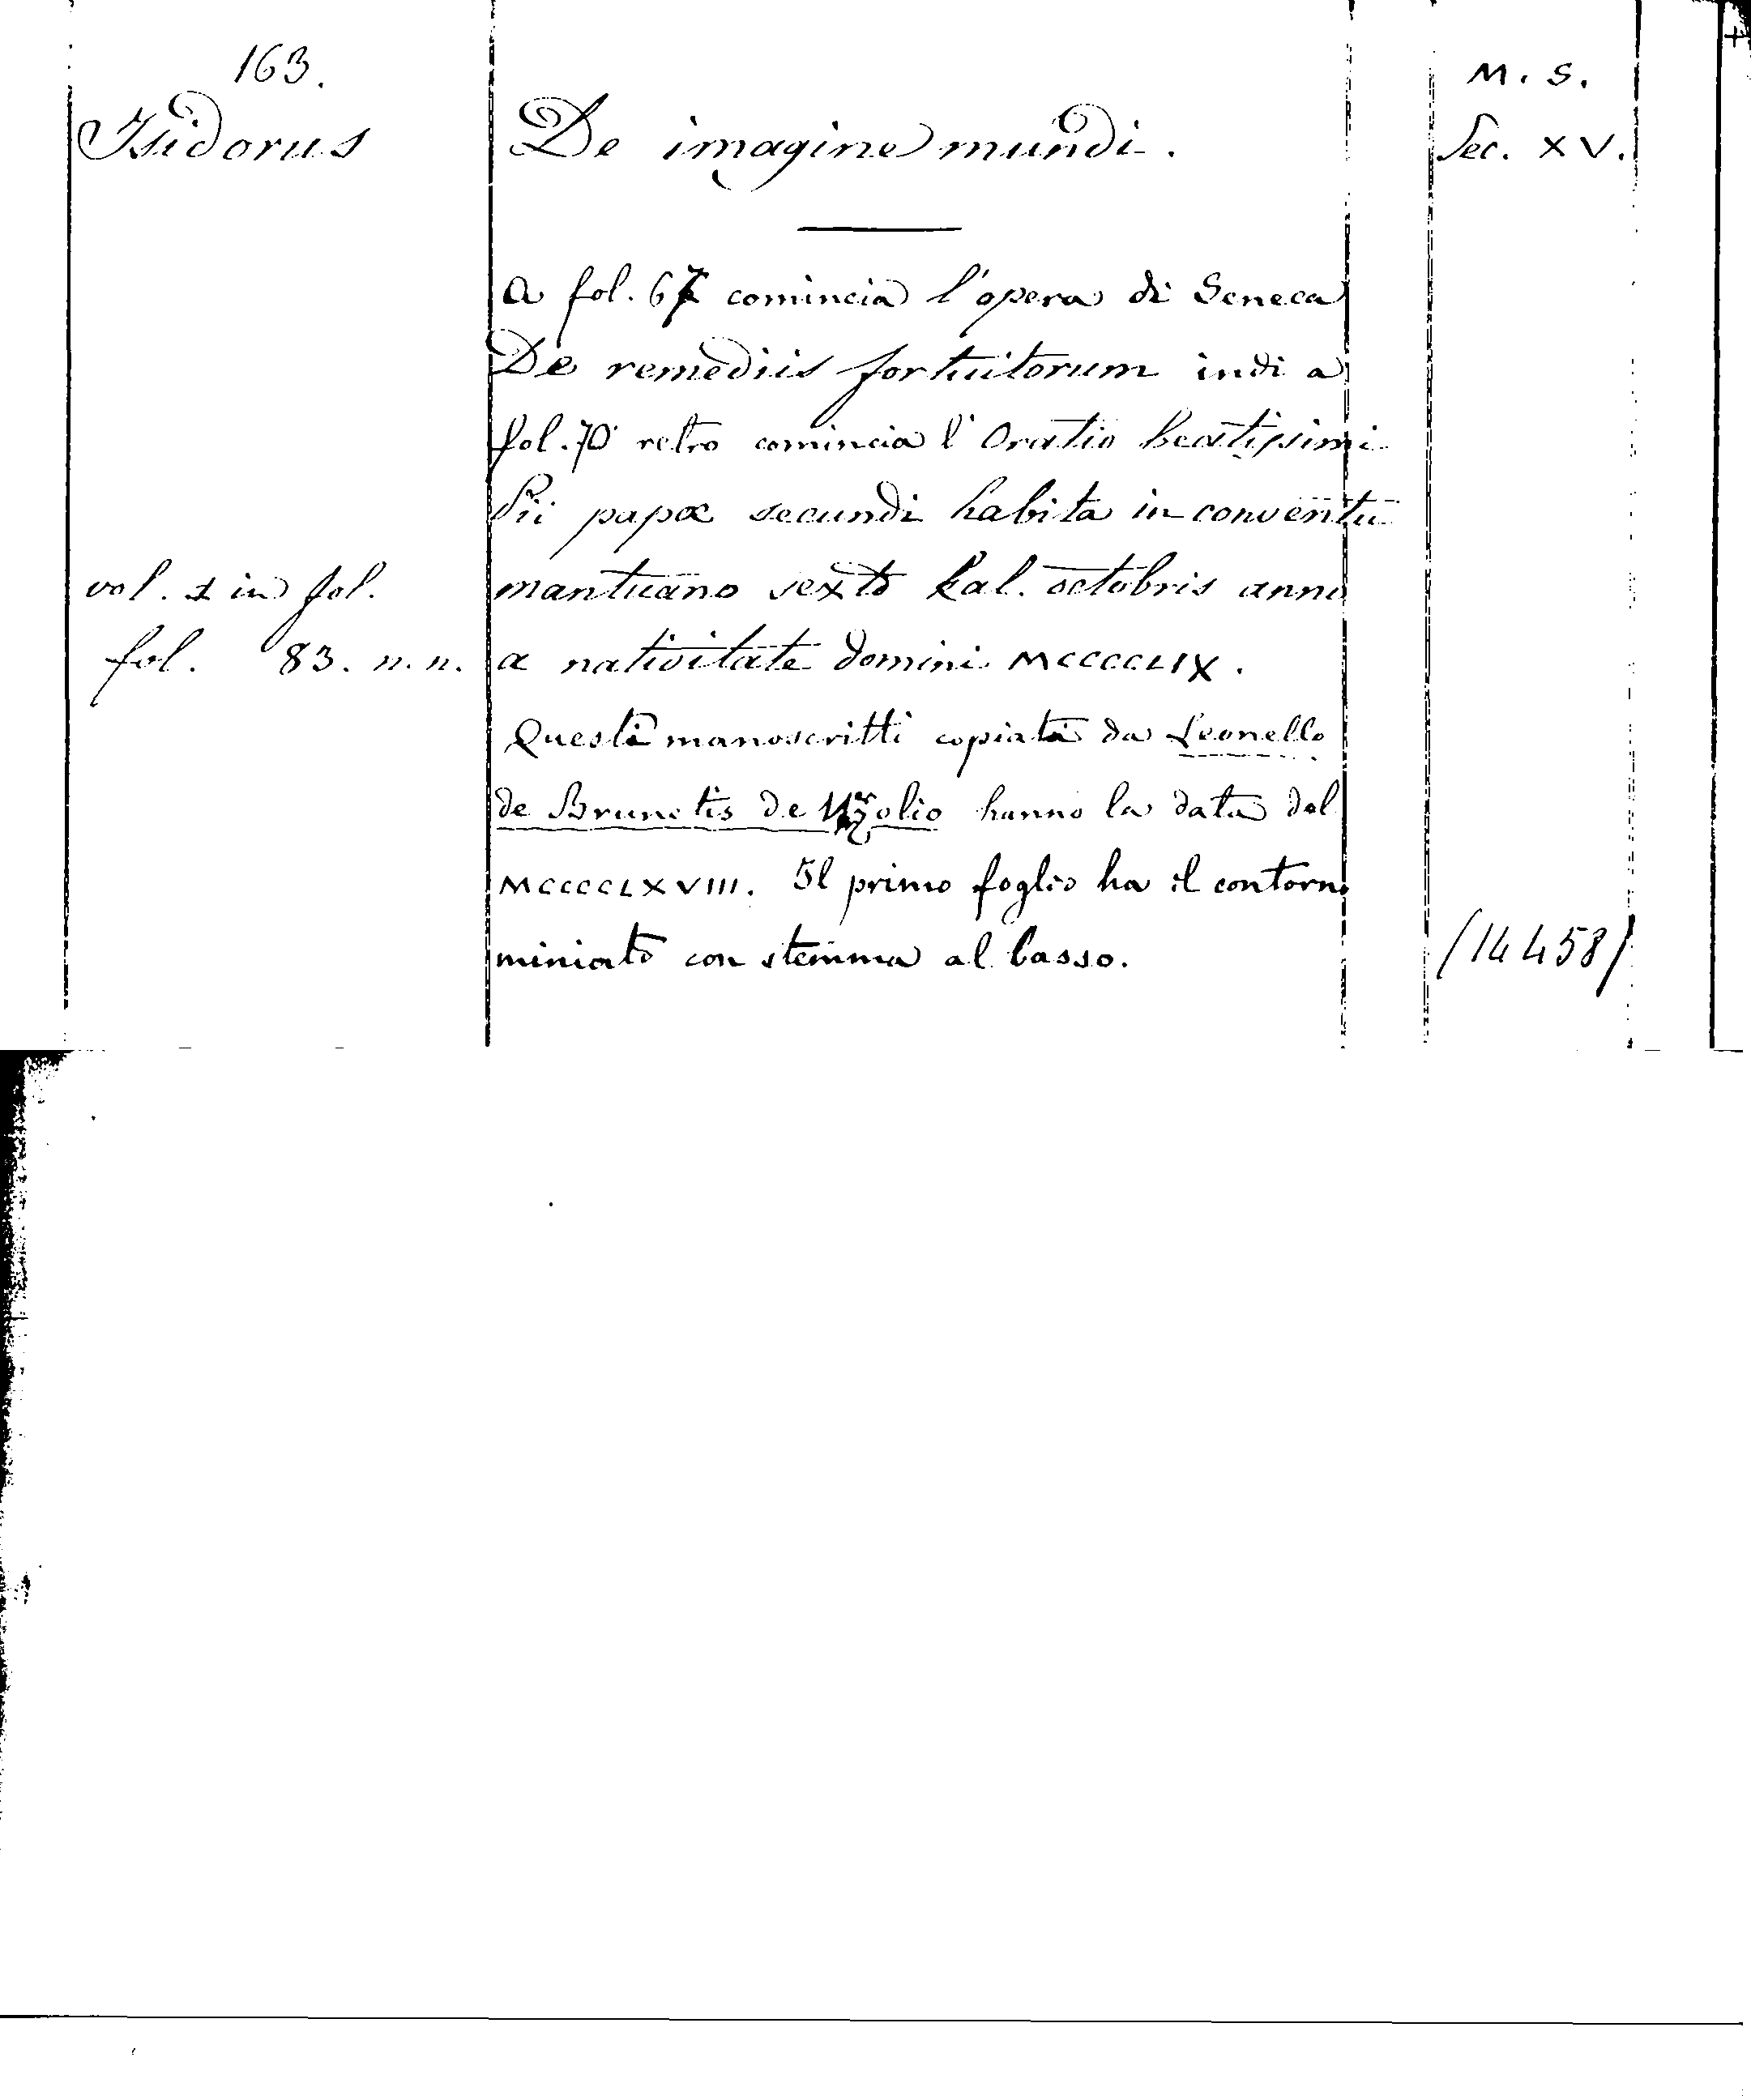 163.
M. S.
Isidorus
De imagine mundi.
Sec. XV.
A fol. 67 comincia l'opera di Seneca
De remediis fortuitorum indi a
fol. 70 retro comincia l'Oratio beatissimi
Pii papæ secundi habita in conventu
vol. 1 in fol.
mantuano sexto kal. octobris anno
fol. 83. n. n.
a nativitate domini MCCCCLIX.
Questi manoscritti copiati da Leonello
de Brunetis de hanno la data del
MCCCCLXVIII. Il primo foglio ha il contorno
miniato con stemma al basso.
(14458)